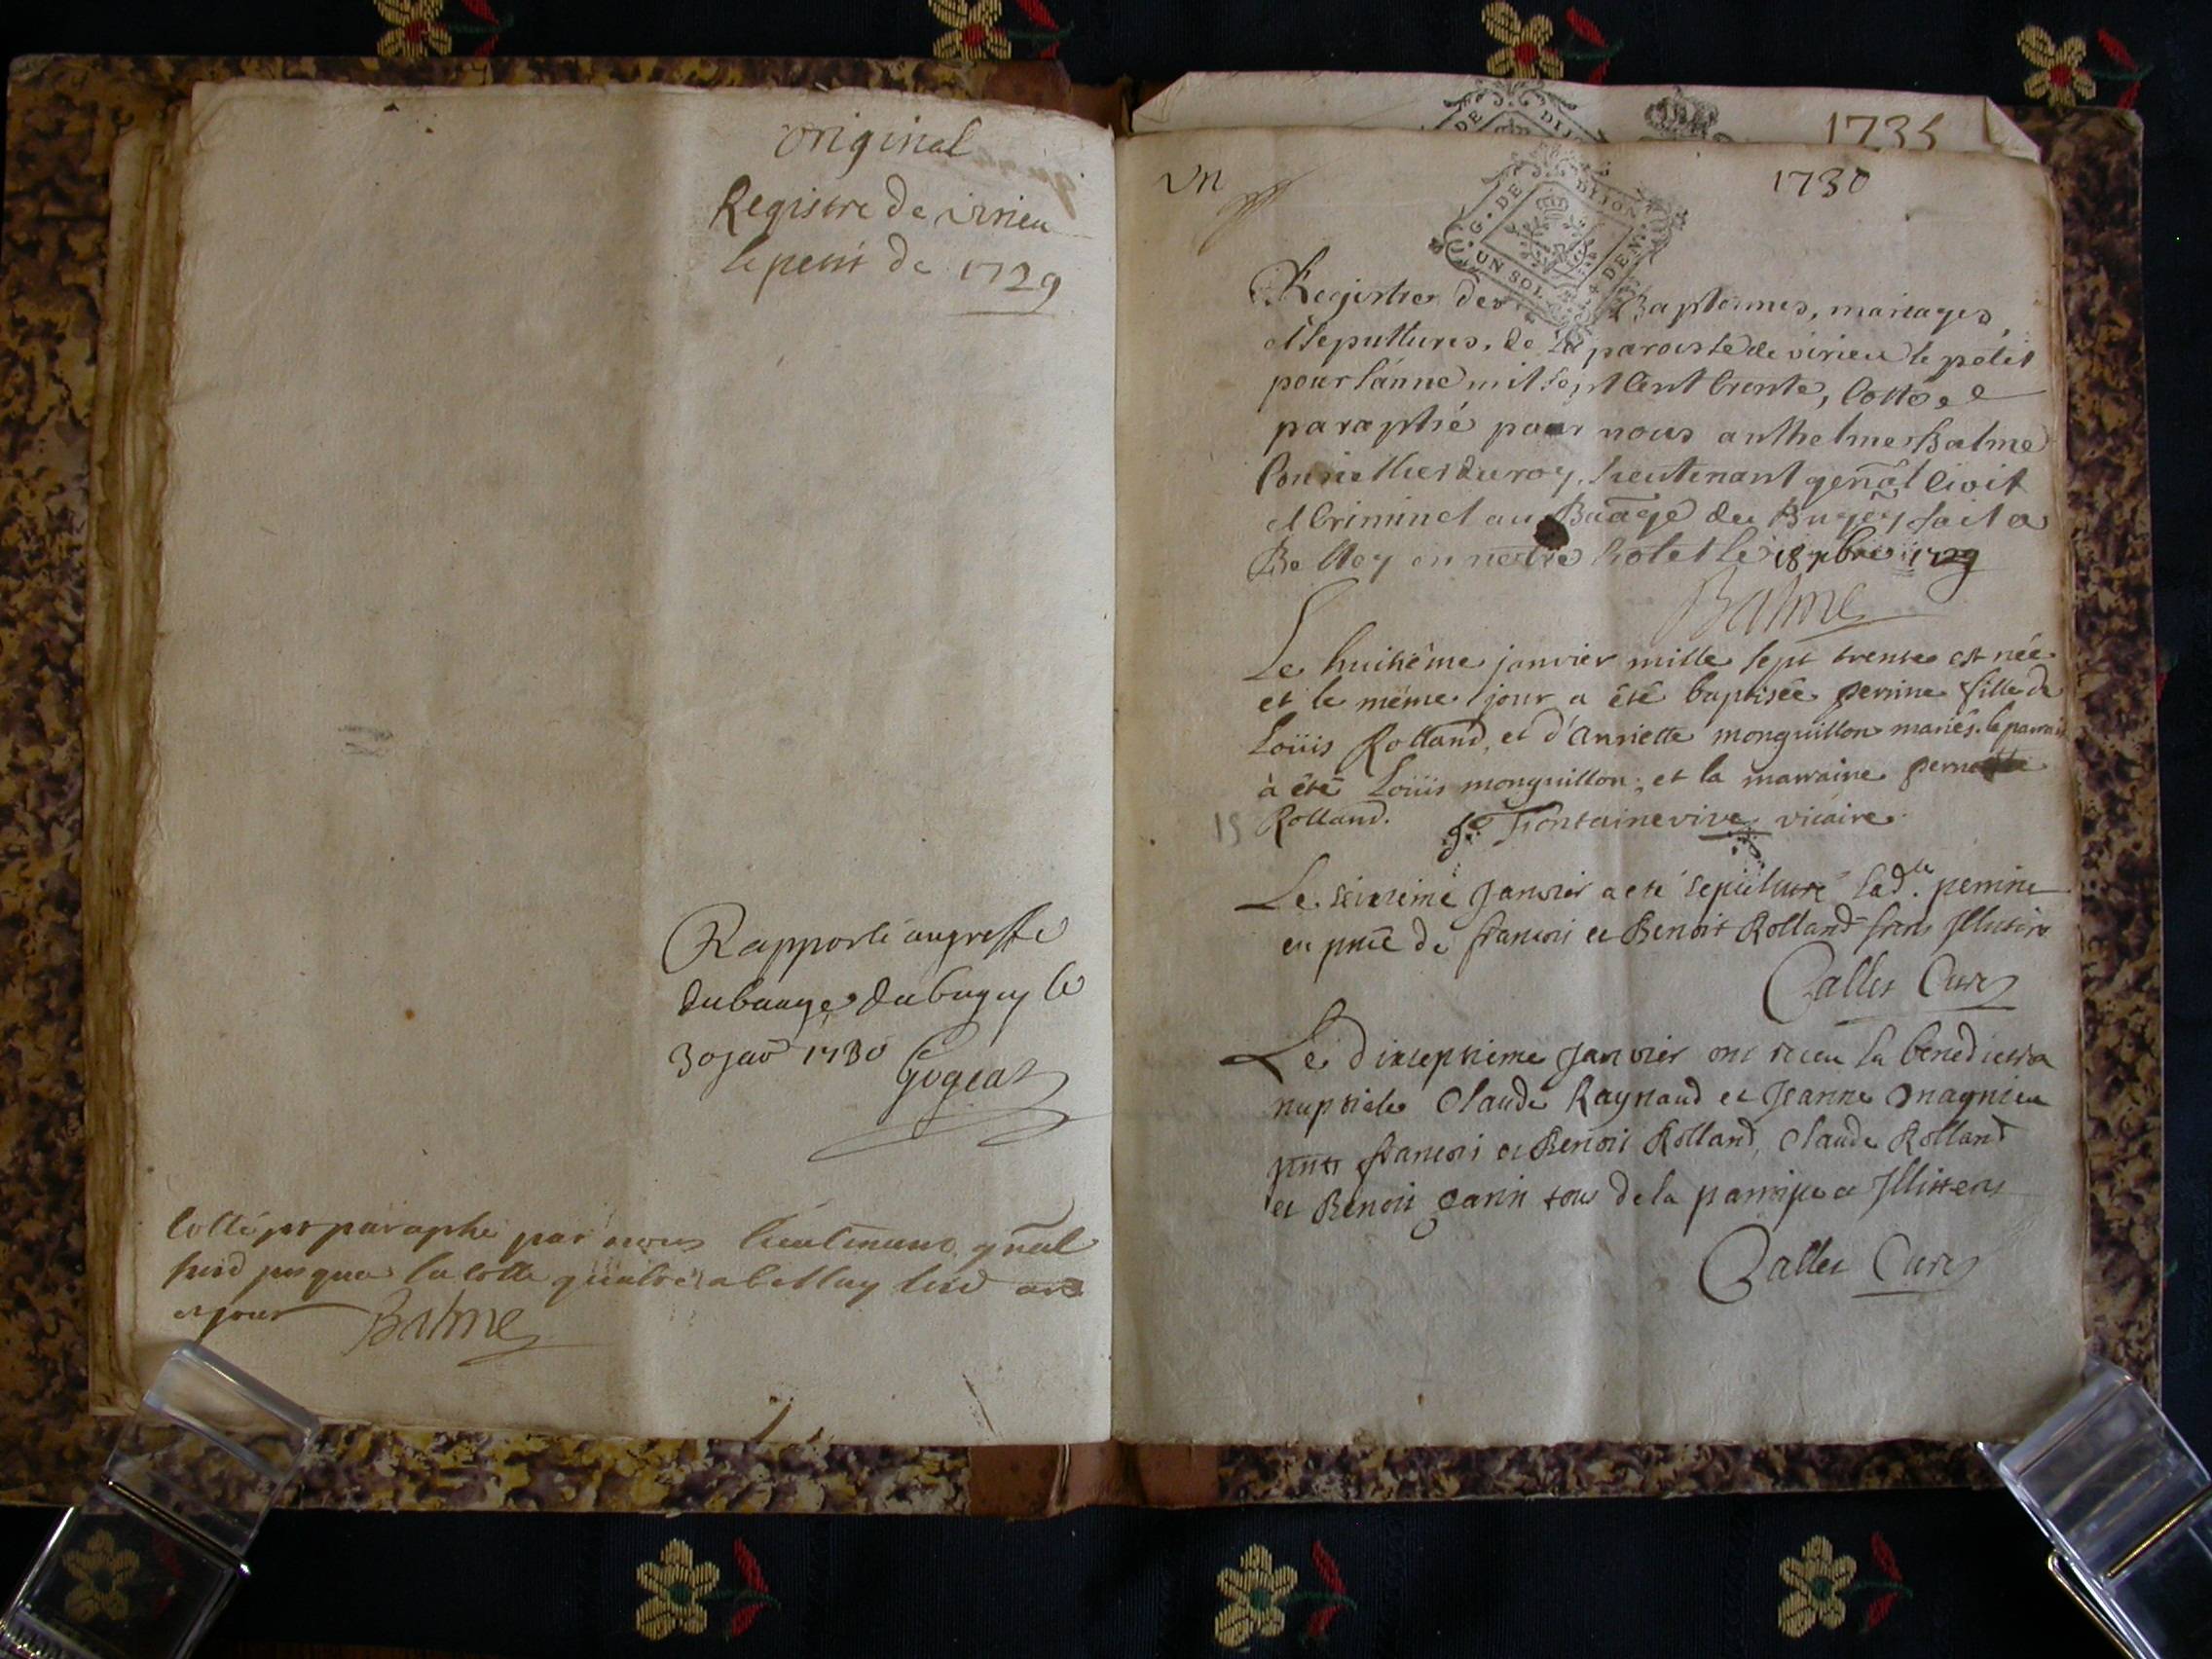 original
Registre de virieu
le petit de 1729
Rapporté au greffe
du baage du bugey le
30 janv 1730 Gogeat
Cotté et paraphé par nous lieutenant gnãl
susd jusques la cotte quatre a bellay lesd an
et jour Balme
1735
DE DIJ
un
1730
G. DE DIJON
UN SOL 4 DEN.
Registre des Baptemes, mariages,
et sepultures, de la paroisse de virieu le petit
pour l'anné mil sept cent trente, cotté et
paraphé par nous anthelme Balme
Conseiller du roy, lieutenant genãl civil
et criminel au Baage du Bugey fait a
Belley en nostre hotel le 18 xbre 1729
Balme
Le huitiême janvier mille sept trente est née
et le même jour a êté baptisée perrine fille de
Loüis Rolland, et d'Anriette monguillon mariés. le parrain
à êté Loüis monguillon; et la marraine pernette
Rolland. fontainevive vicaire.
15
Le seizieme Janvier a eté sepulturé lad.te perrine
en pnce de francois et Benoit Rolland freres Illiteres
Callet Curé
Le dixseptieme Janvier ont receu la benediction
nuptiale Claude Raynaud et Jeanne Magnieu
pnts francois et Benoit Rolland, Claude Rolland
et Benoit garin tous de la parroisse et Illiteres
Callet Curé